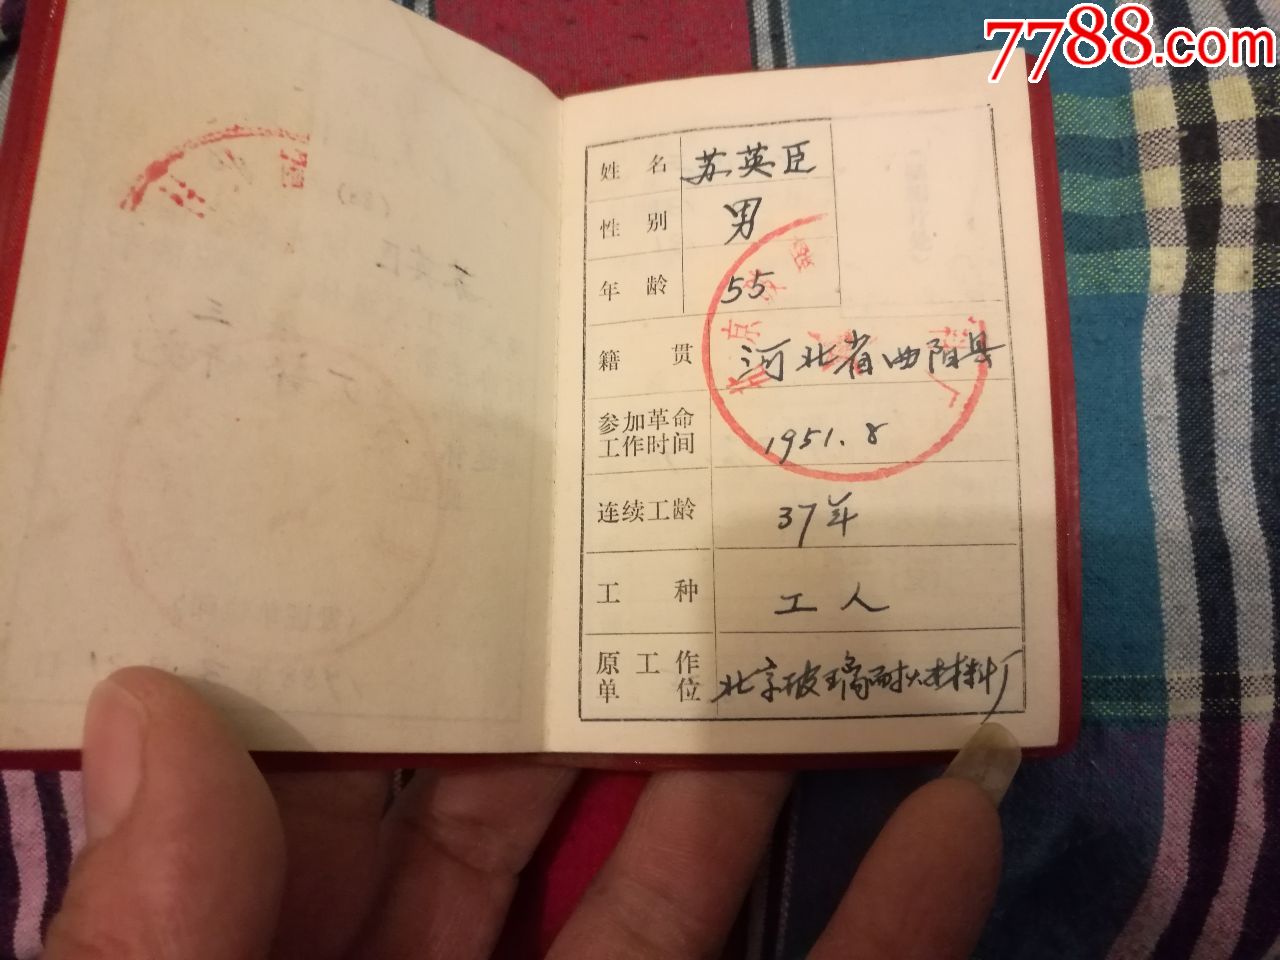 7788.com
姓名 苏英臣
性别 男
年龄 55
籍贯 河北省曲阳县
参加革命
工作时间 1951.8
连续工龄 37年
工种 工人
原工作
单位 北京玻璃耐火材料厂